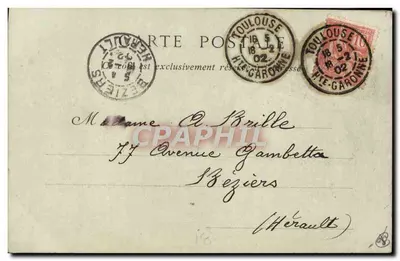 CARTE POSTALE
est exclusivement réservé
TOULOUSE
18 5
18 -2
02
Hte-GARONNE
TOULOUSE
18 5
18 -2
02
Hte-GARONNE
BEZIERS
HERAULT
Madame A. Brille
77 Avenue Gambetta
Béziers
(Hérault)
Carte-Postale